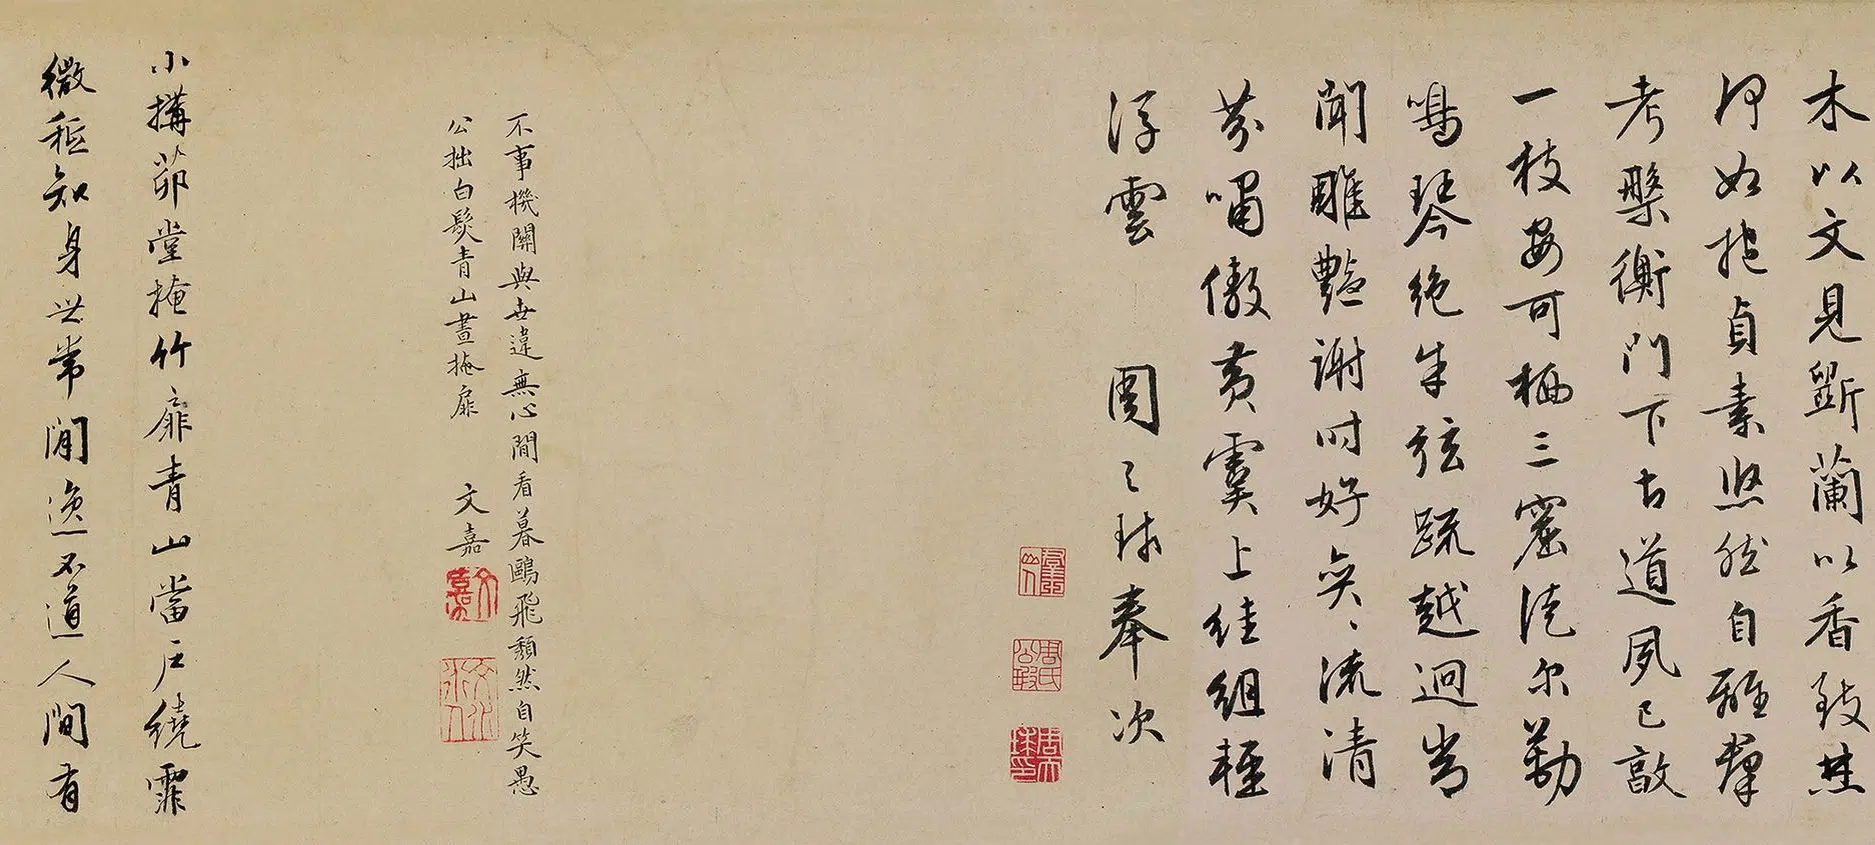 木以文見斵蘭以香致焚
何如抱貞素悠然自離羣
考槃衡門下古道夙已敦
一枝安可栖三窟徒尔勤
鳴琴絶朱弦疏越迥当
聞雕艶謝时好奐〻流清
芬嘯傲黄虞上絓組轻
浮雲 周之球奉次
不事機關與世違無心間看暮鷗飛頽然自笑愚
公拙白髮青山晝掩扉 文嘉
小搆茆堂掩竹扉青山當户繞霏
微秪知身世常閒逸不道人间有